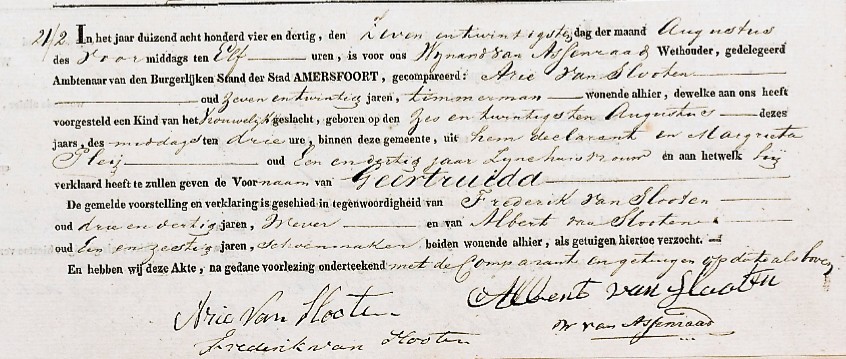 212. In het jaar duizend acht honderd vier en dertig, den Zeven entwintigste dag der maand Augustus
des Voor middags ten Elf uren, is voor ons Wynand van Assenraad Wethouder, gedelegeerd
Ambtenaar van den Burgerlijken Stand der Stad AMERSFOORT, gecompareerd: Arie van Slooten
oud Zeven en twintig jaren, timmerman wonende alhier, dewelke aan ons heeft
voorgesteld een Kind van het Vrouwelijk geslacht, geboren op den Zes en twintigsten Augustus dezes
jaars, des middags ten drie ure, binnen deze gemeente, uit hem declarant en Margrieta
Pleij oud Een en dertig jaar Zyne huisvrouw en aan hetwelk hij
verklaard heeft te zullen geven de Voornaam van Geertruida
De gemelde voorstelling en verklaring is geschied in tegenwoordigheid van Frederik van Slooten
oud drie en dertig jaren, Wever en van Albert van Slooten
oud Een en zestig jaren, Schoenmaker beiden wonende alhier, als getuigen hiertoe verzocht.
En hebben wij deze Akte, na gedane voorlezing onderteekend met de Comparant en getuigen op dato als boven
Arie van Slooten Albert van Slooten
Frederik van Slooten W van Assenraad